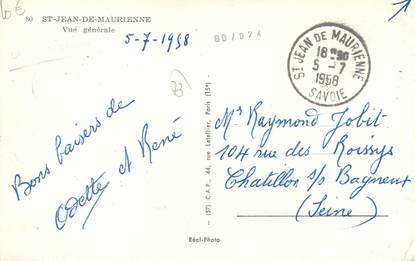 80 ST-JEAN-DE-MAURIENNE
Vue générale
5-7-1958
801074
ST JEAN DE MAURIENNE
18H30
5-7
1958
SAVOIE
73
Bons baisers de
Odette et René
(57) C.A.P., 44, rue Letellier, Paris (15e)
Mr Raymond Jobit
104 rue des Roissys
Chatillon s/s Bagneux
(Seine)
Réal-Photo